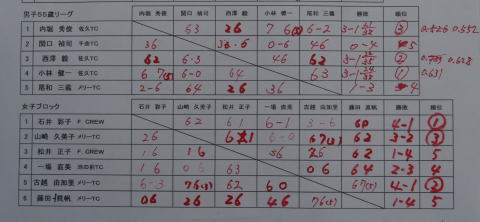 男子55歳リーグ
内堀 秀俊 関口 禎司 西澤 毅 小林 健一 尾和 三義 勝敗 順位
1 内堀 秀俊 佐久TC 63 26 7 6 6-2 3-1 ③ 0.526 0.552
2 関口 禎司 千曲TC 36 36 0-6 46 0-4 5
3 西澤 毅 佐久TC 62 6-3 46 62 3-1 ② 0.628
4 小林 健一 佐久TC 6 7(5) 6-0 64 63 3-1 ① 0.631
5 尾和 三義 メリーTC 2-6 64 26 36 1-3 4
女子ブロック
石井 彩子 山崎 久美子 松井 正子 一場 直美 古越 由加里 藤田 真帆 勝敗 順位
1 石井 彩子 F.CREW 62 61 6-1 3-6 60 4-1 ①
2 山崎 久美子 メリーTC 26 61 6-0 67(5) 62 3-2 ③
3 松井 正子 F.CREW 16 16 36 26 62 1-4 5
4 一場 直美 16 06 63 06 64 2-3 4
5 古越 由加里 メリーTC 6-3 76(5) 62 60 67(5) 4-1 ②
6 藤田 真帆 メリーTC 06 26 26 46 76(5) 1-4 5